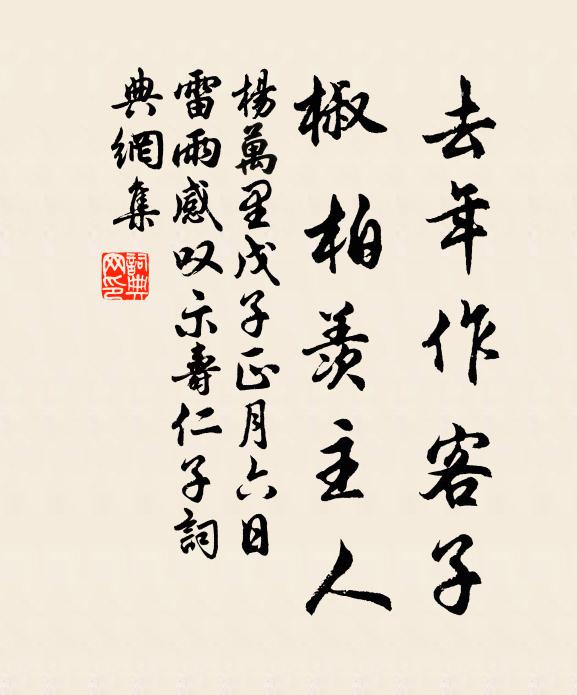 去年作客子
椒柏羡主人
楊萬里戊子正月六日
雷雨感叹示壽仁子詞
典網集
詞典网印